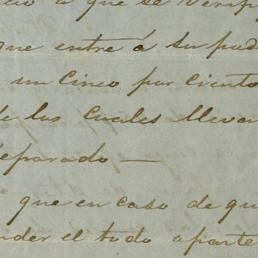 a que se
que entre á su pod
un Cinco por Ciento
de las Cuales llevar
separado —
que en caso de qu
nder el todo ó parte